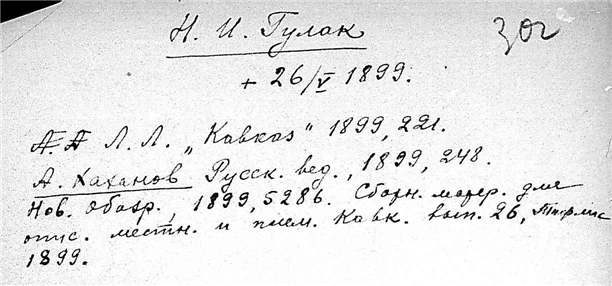 Н. И. Гулак
302
+ 26/V 1899.
Л. Л. „Кавказ" 1899, 221.
А. Хаханов Русск. вед., 1899, 248.
Нов. Обозр., 1899, 5286. Сборн. матер. для
опис. местн. и плем. Кавк. вып. 26, Тифлис
1899.